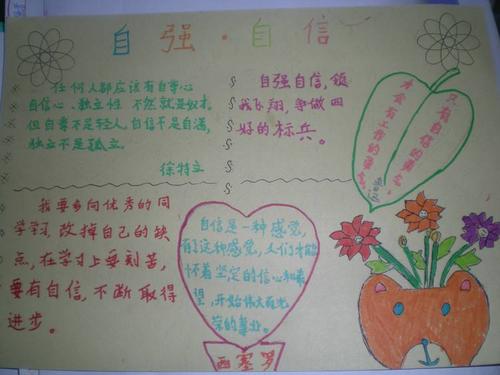 自强·自信
任何人都应该有自尊心
自信心、独立性 不然就是奴才。
但自尊不是轻人,自信不是自满,
独立不是孤立。
徐特立
自强自信,领
我飞翔,争做四
好的标兵。
只有自信的勇气,
才会有工作的勇气。
鲁迅
我要多向优秀的同
学学习,改掉自己的缺
点,在学习上要刻苦,
要有自信,不断取得
进步。
自信是一种感觉,
有这种感觉,人们才能
怀着坚定的信心和希
望,开始伟大而光
荣的事业。
西塞罗